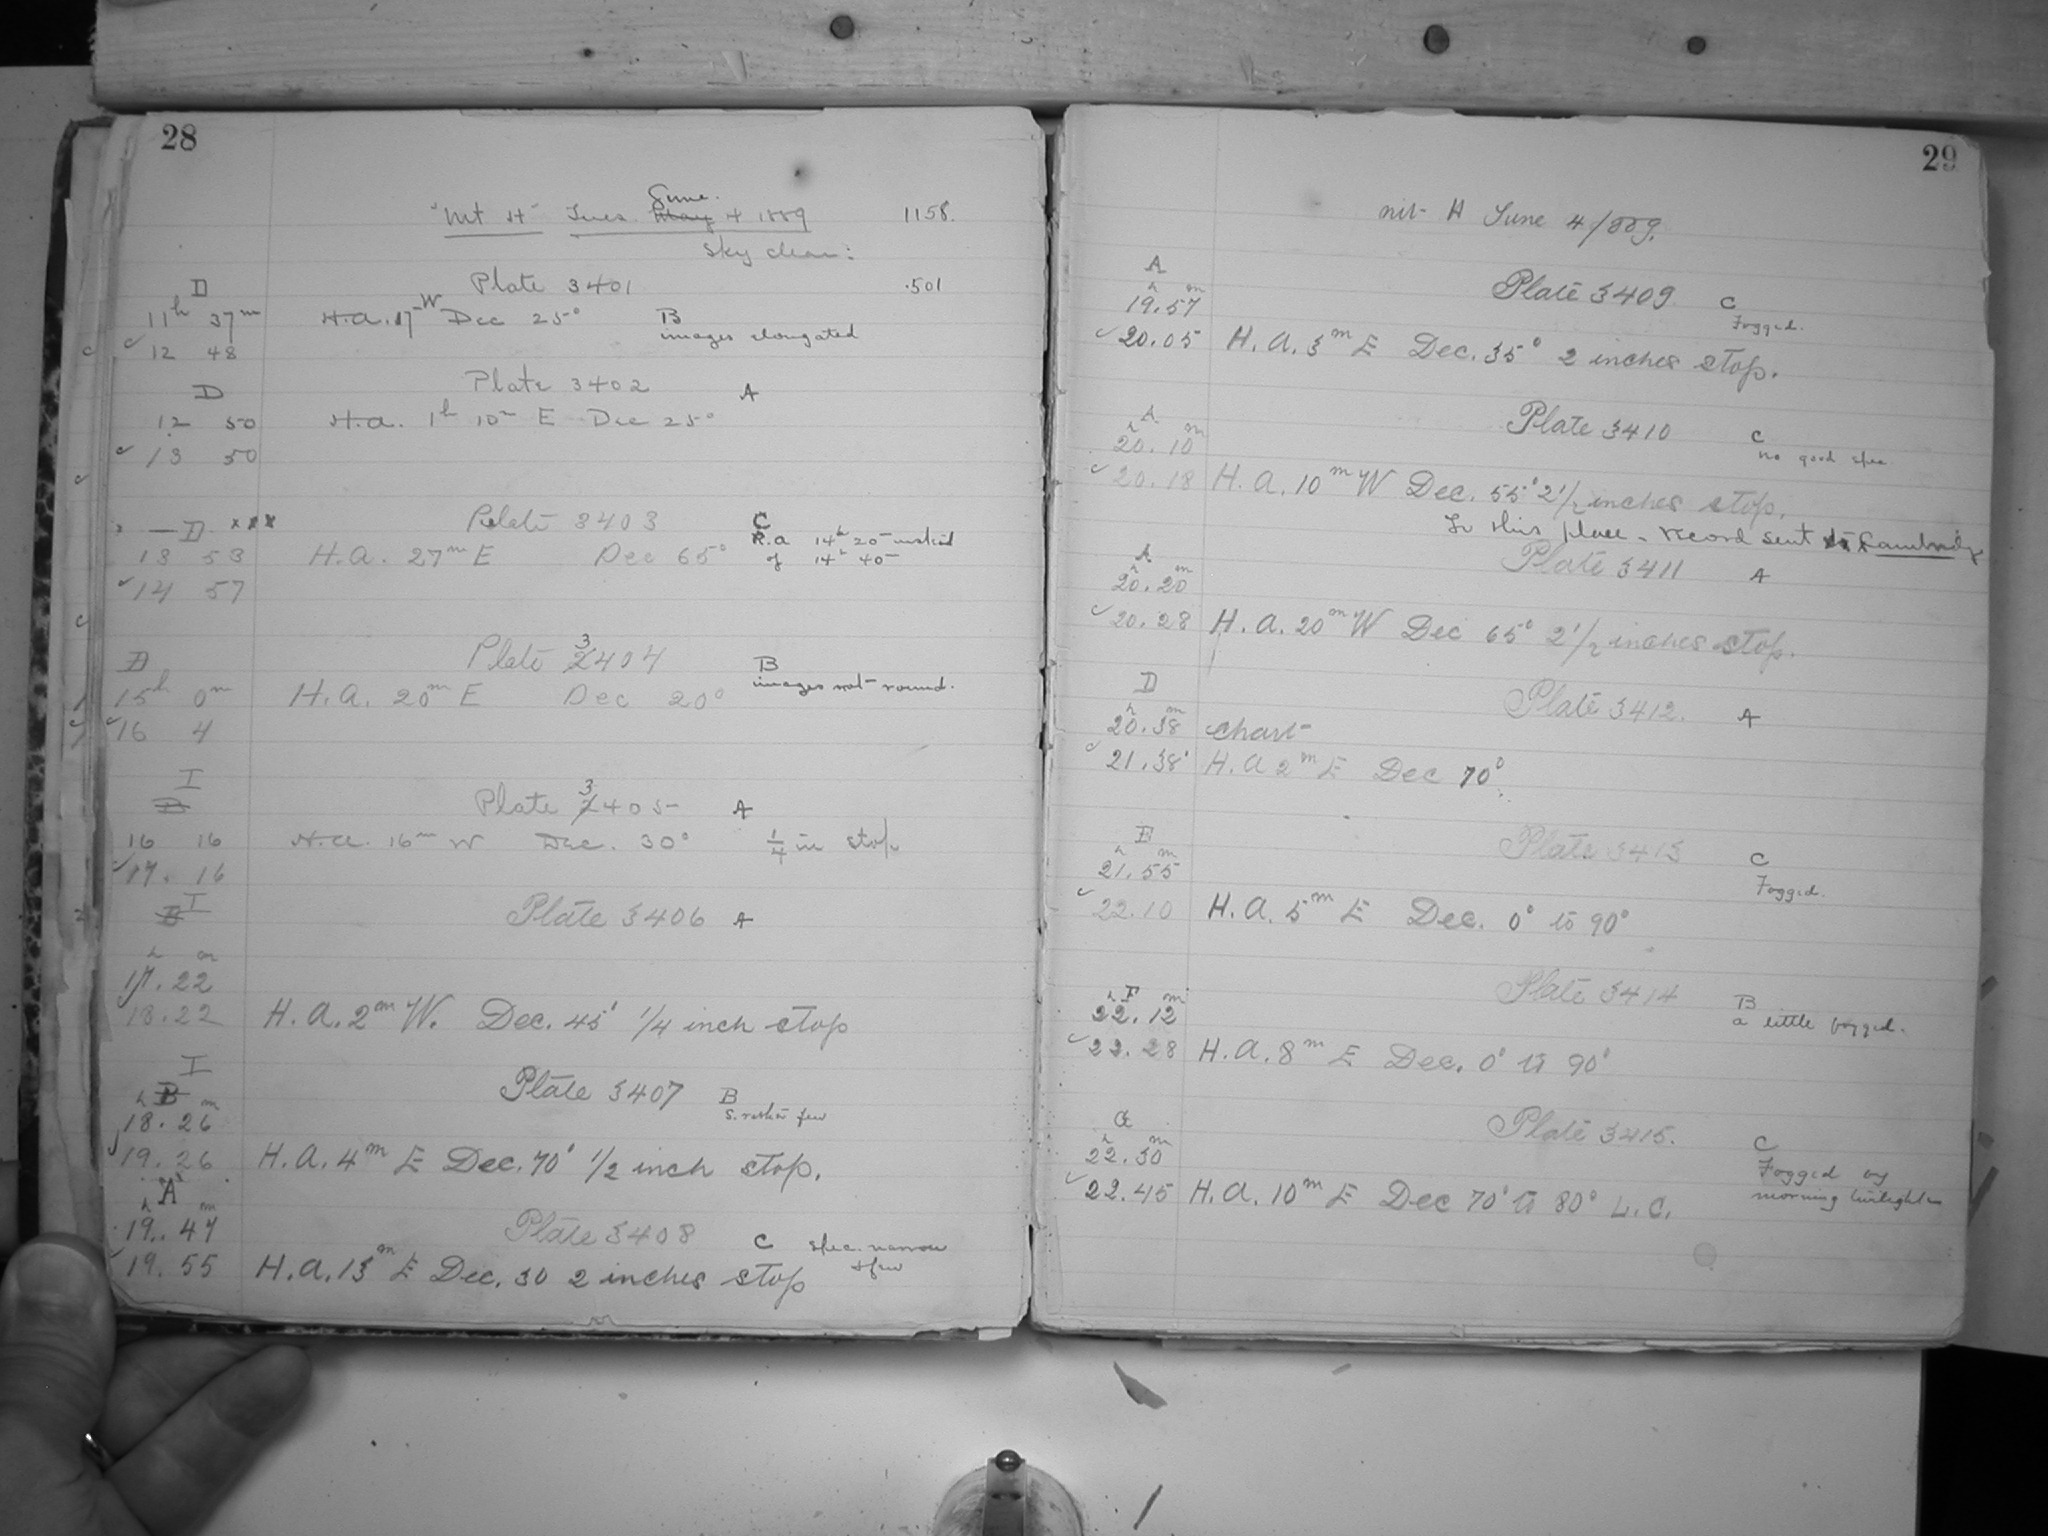 28
June.
"Mt H" Tues. May 4 1889 1158.
Sky clear:
D Plate 3401 .501
11h 37m H.A. 17 W Dec 25° B
12 48 images elongated
D Plate 3402 A
12 50 H.A. 1h 10m E Dec 25°
13 50
D xxx Plate 3403 C
13 53 H.A. 27m E Dec 65° R.a 14h 20m instead
14 57 of 14h 40m
D Plate 3404 B
15h 0m H.A. 20m E Dec 20° images not round.
16 4
I
D Plate 3405 A
16 16 H.A. 16m W Dec. 30° 1/4 in stop
17. 16
I Plate 3406 A
h m
17.22
18.22 H.A. 2m W. Dec. 45° 1/4 inch stop
I
h B m Plate 3407 B
18.26 S. rather few
19.26 H.A. 4m E Dec. 70° 1/2 inch stop.
A
h m
19.47 Plate 3408 C spec. narrow
19.55 H.A. 13m E Dec. 30 2 inches stop & few
29
Mt H June 4/889.
A
h m Plate 3409 C
19.57 Fogged.
20.05 H.A. 3m E Dec. 35° 2 inches stop.
A Plate 3410 C
h m
20.10 no good spec.
20.18 H.A. 10m W Dec. 55° 2 1/2 inches stop.
In this place - record sent to Cambridge
A Plate 3411 A
h m
20.20
20.28 H.A. 20m W Dec 65° 2 1/2 inches stop.
D Plate 3412. A
h m
20.38 Chart
21.38 H.A 2m E Dec 70°
E Plate 3413 C
h m
21.55 Fogged.
22.10 H.A. 5m E Dec. 0° to 90°
h F m Plate 3414 B
22.12 a little fogged.
22.28 H.A. 8m E Dec. 0° to 90°
G Plate 3415. C
h m
22.30 Fogged by
22.45 H.A. 10m E Dec 70° to 80° L.C. morning twilight